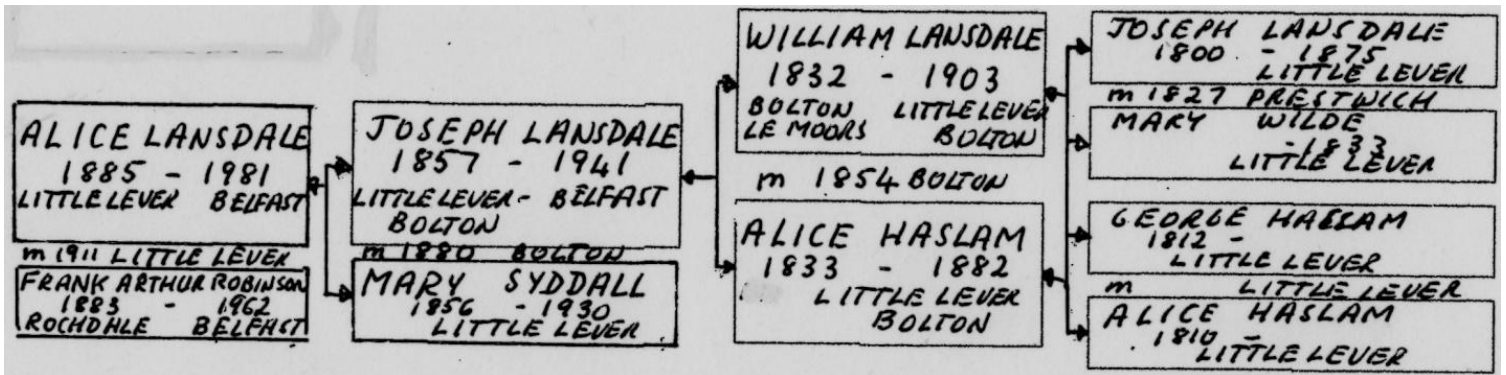 ALICE LANSDALE
1885 - 1981
LITTLE LEVER BELFAST
m 1911 LITTLE LEVER
FRANK ARTHUR ROBINSON
1883 - 1962
ROCHDALE BELFAST
JOSEPH LANSDALE
1857 - 1941
LITTLE LEVER - BELFAST
BOLTON
m 1880 BOLTON
MARY SYDDALL
1856 - 1930
LITTLE LEVER
WILLIAM LANSDALE
1832 - 1903
BOLTON LITTLE LEVER
LE MOORS BOLTON
m 1854 BOLTON
ALICE HASLAM
1833 - 1882
LITTLE LEVER
BOLTON
JOSEPH LANSDALE
1800 - 1875
LITTLE LEVER
m 1827 PRESTWICH
MARY WILDE
- 1833
LITTLE LEVER
GEORGE HASLAM
1812 -
LITTLE LEVER
m LITTLE LEVER
ALICE HASLAM
1810 -
LITTLE LEVER